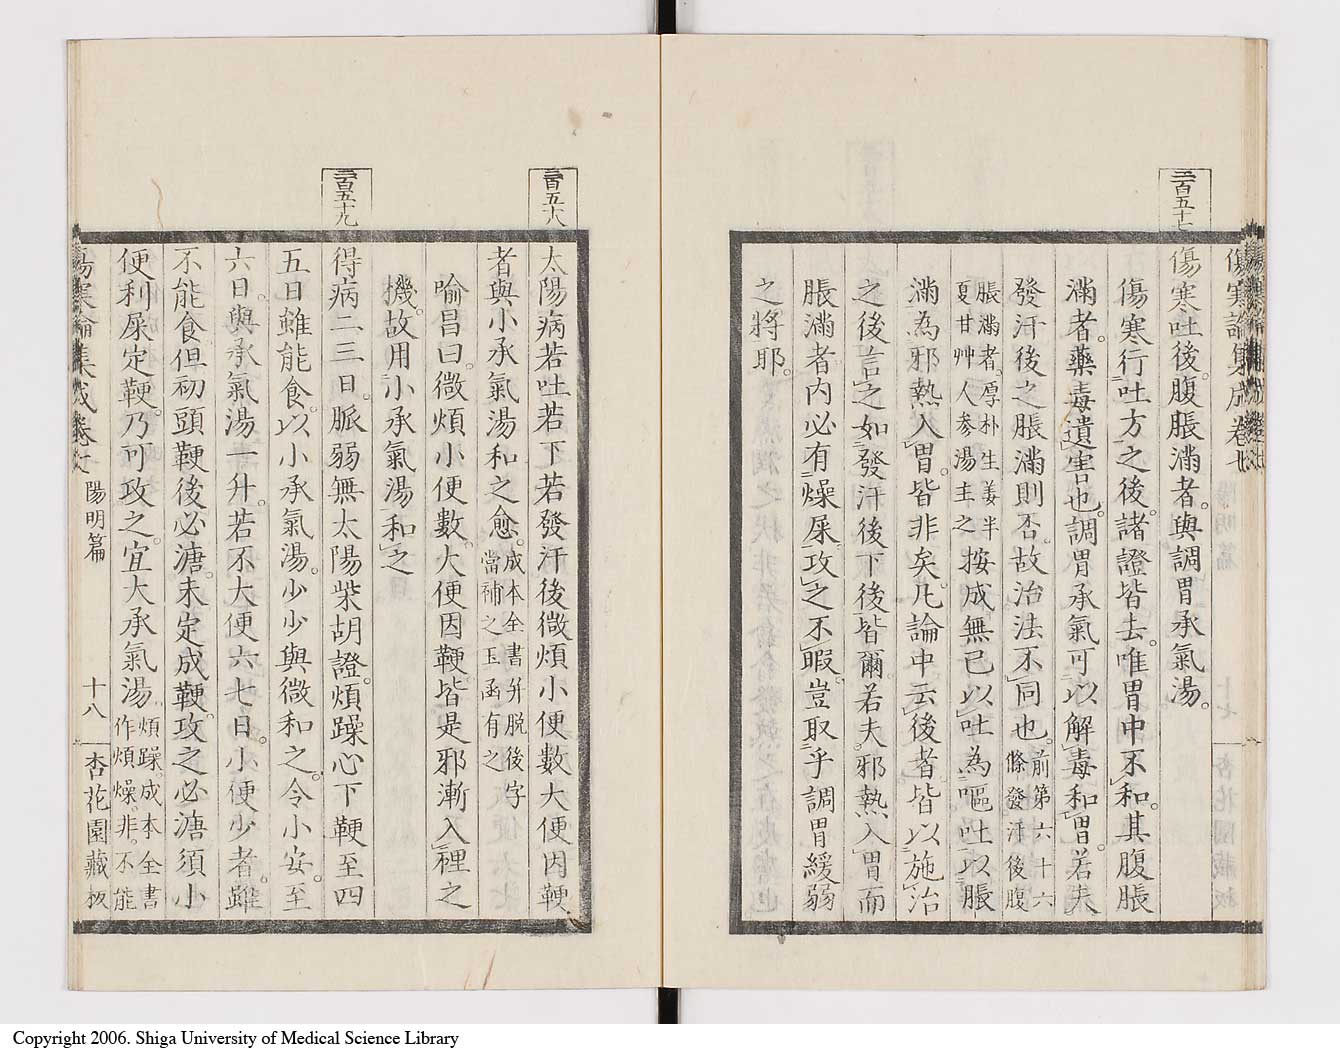 傷寒論集成卷七
三百五十七
傷寒吐後腹脹滿者。與調胃承氣湯。
傷寒行吐方之後。諸證皆去。唯胃中不和。其腹脹
滿者。藥毒遺害也。調胃承氣可以解毒和胃。若夫
發汗後之脹滿則否。故治法不同也。前第六十六條發汗後腹
脹滿者。厚朴生姜半夏甘艸人參湯主之按成無已以吐為嘔吐以脹
滿為邪熱入胃。皆非矣。凡論中云後者。皆以施治
之後言之如發汗後下後皆爾若夫邪熱入胃而
脹滿者內必有燥屎攻之不暇。豈取乎調胃緩弱
之將耶。
三百五十八
太陽病若吐若下若發汗後微煩小便數大便因鞕
者與小承氣湯和之愈。成本全書幷脫後字當補之玉函有之
喻昌曰。微煩小便數。大便因鞕。皆是邪漸入裡之
機。故用小承氣湯和之
三百五十九
得病二三日。脈弱無太陽柴胡證。煩躁心下鞕至四
五日雖能食。以小承氣湯。少少與微和之。令小安。至
六日。與承氣湯一升。若不大便六七日。小便少者。雖
不能食但初頭鞕後必溏。未定成鞕。攻之必溏須小
便利屎定鞕。乃可攻之。宜大承氣湯。煩躁。成本全書作煩燥。非。不能
傷寒論集成卷七
陽明篇
十八
杏花園藏板